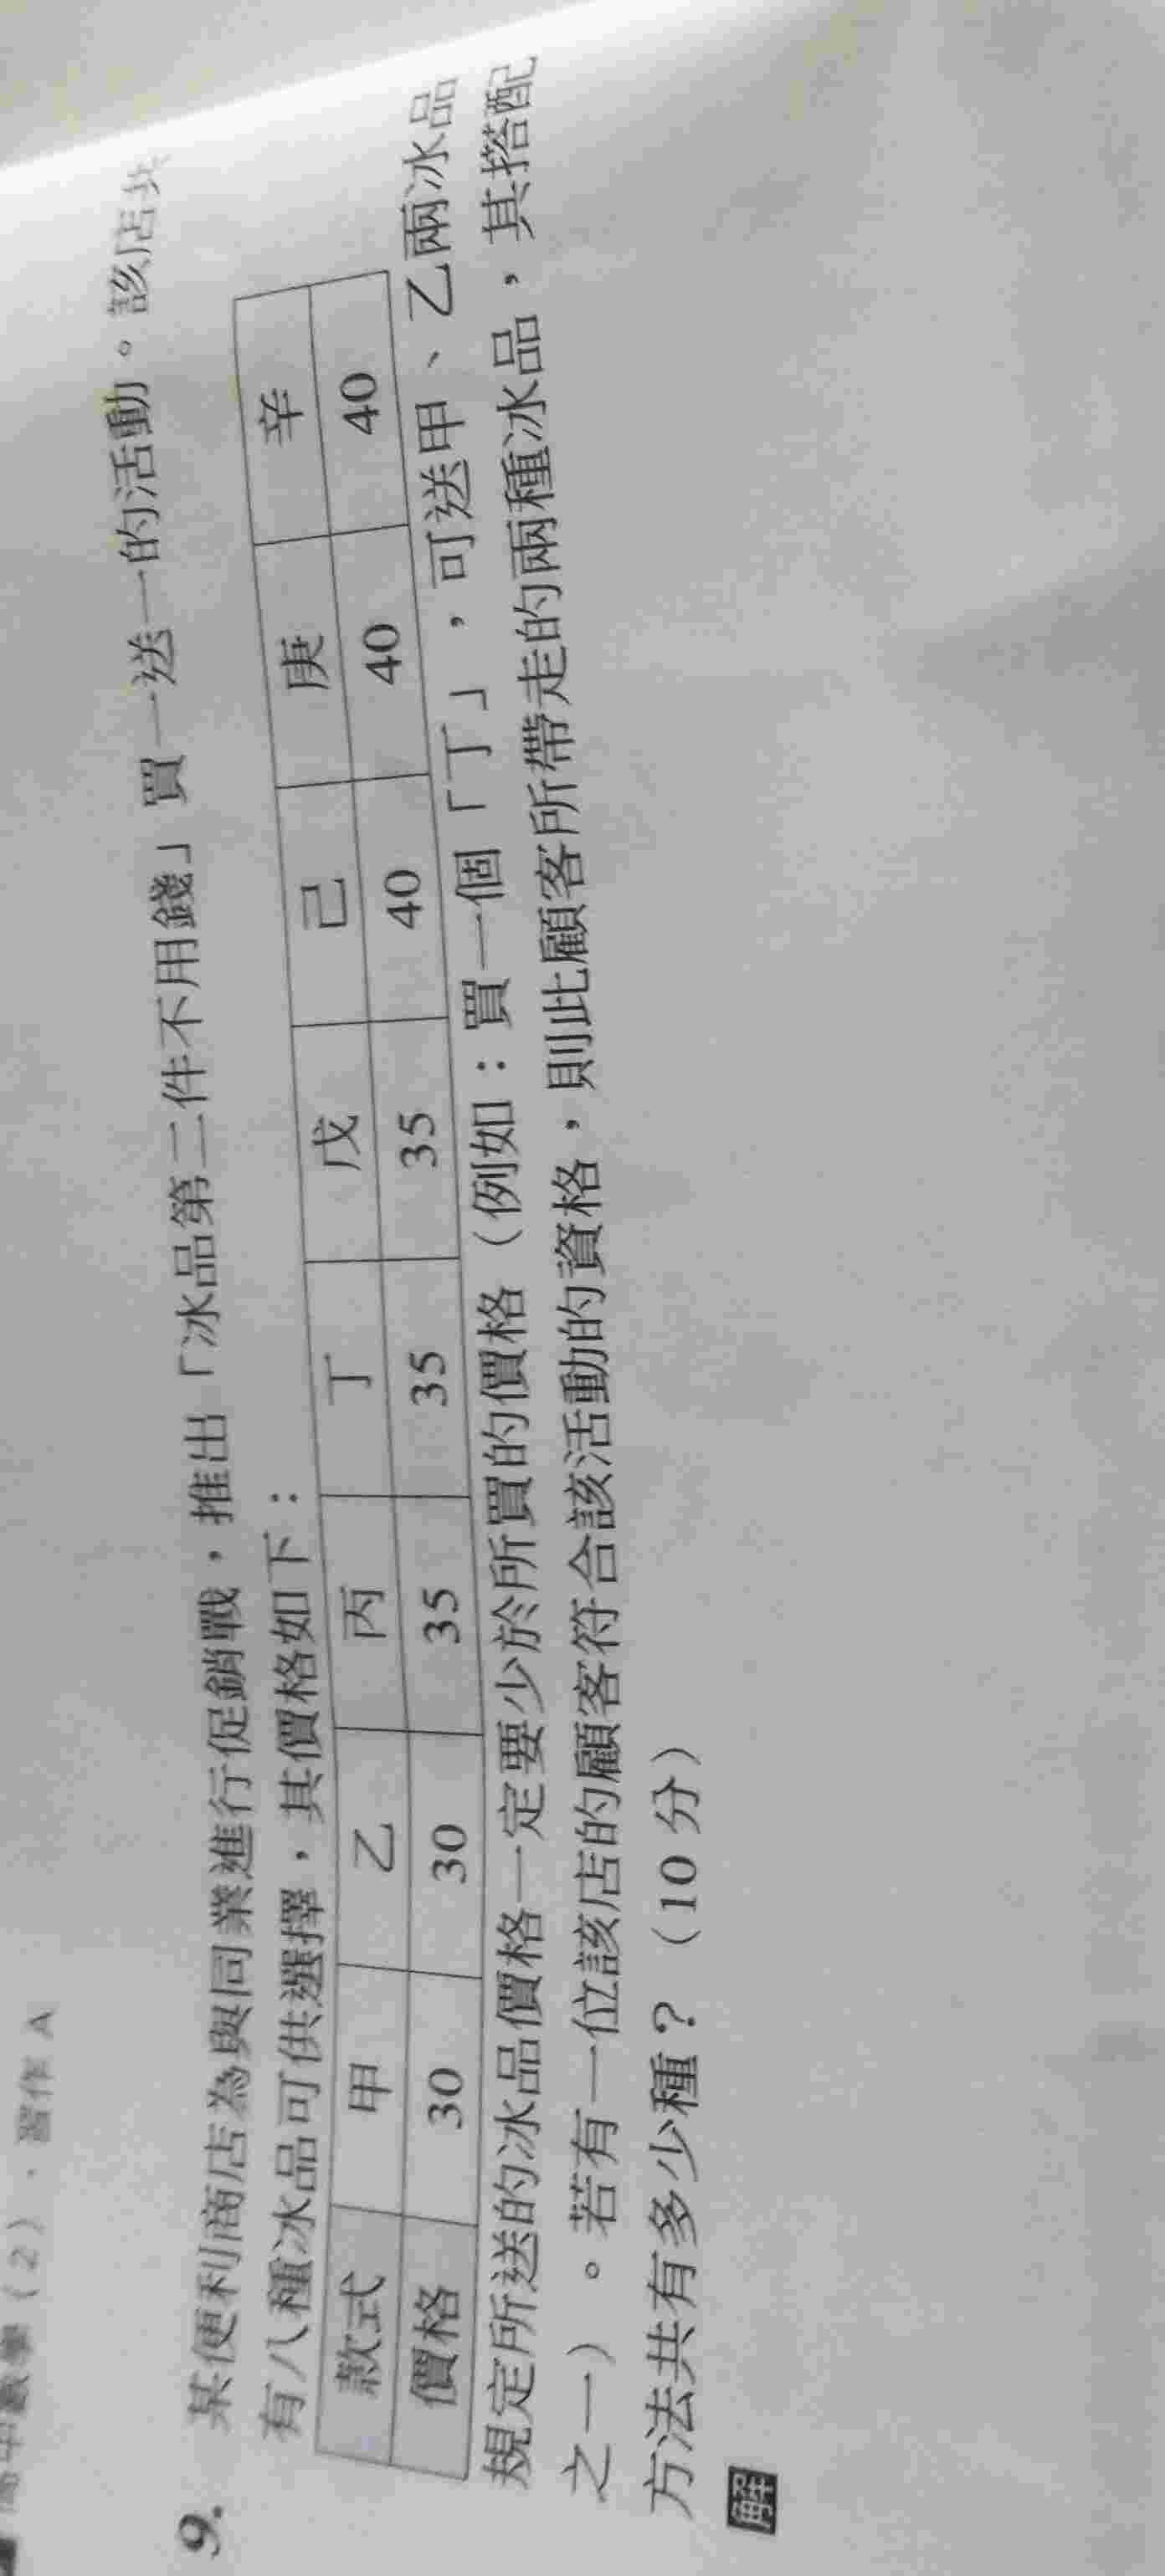 高中數學（2）．習作 A
9. 某便利商店為與同業進行促銷戰，推出「冰品第二件不用錢」買一送一的活動。該店共
有八種冰品可供選擇，其價格如下：
款式 甲 乙 丙 丁 戊 己 庚 辛
價格 30 30 35 35 35 40 40 40
規定所送的冰品價格一定要少於所買的價格（例如：買一個「丁」，可送甲、乙兩冰品
之一）。若有一位該店的顧客符合該活動的資格，則此顧客所帶走的兩種冰品，其搭配
方法共有多少種？（10 分）
解